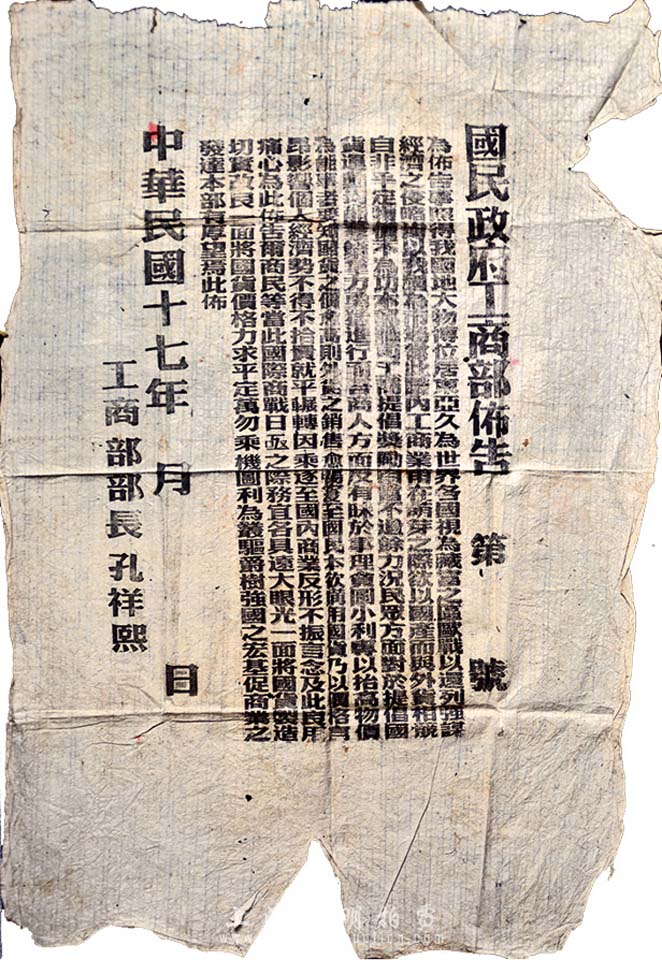 國民政府工商部佈告 第 號
為佈告事照得我國地大物博位居東亞久為世界各國視為藏富之區歐戰以還列強謀
經濟之侵略 以我國為 當此國內工商業甫在萌芽之際欲以國產而與外貨相競
自非平定物價不為功本部 工商提倡獎勵 不遺餘力況民眾方面對於提倡國
貨運動 方 進行而各商人方面反有昧於事理貪圖小利專以抬高物價
為能事者要知國貨之價愈高則外貨之銷售愈暢夏至國民本欲購用國貨乃以價格高
昂影響個人經濟勢不得不拾貴就平輾轉因乘遂至國內商業反形不振言念及此良用
痛心為此佈告爾商民等當此國際商戰日亟之際務宜各具遠大眼光一面將國貨製造
切實改良一面將國貨價格力求平定萬勿乘機圖利為叢驅爵樹強國之宏基促商業之
發達本部有厚望焉此佈
中華民國十七年 月 日
工商部部長孔祥熙